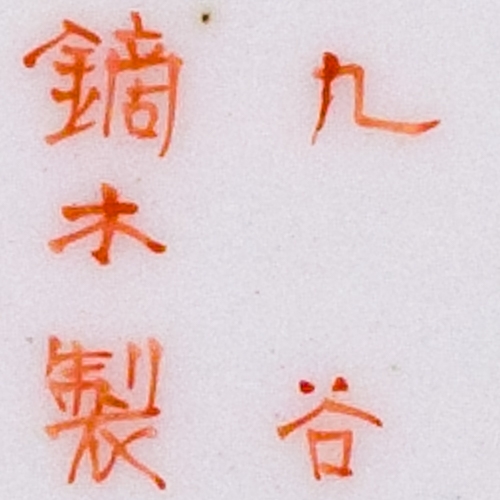 九谷
鏑木製